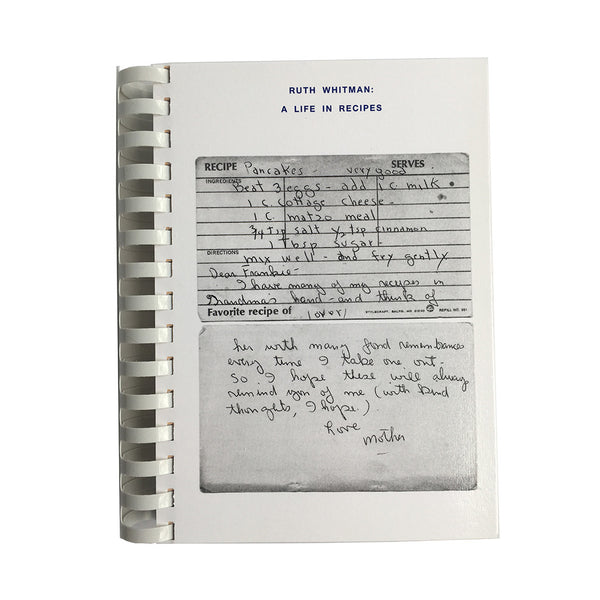 RUTH WHITMAN:
A LIFE IN RECIPES
RECIPE Pancakes - very good SERVES
INGREDIENTS
Beat 3 eggs - add 1 c. milk
1 c. Cottage cheese -
1 c. matzo meal
3/4 tsp salt ½ tsp cinnamon
1 Tbsp sugar -
DIRECTIONS
mix well - and fry gently
Dear Frankie -
I have many of my recipes in
Grandma's hand - and think of
Favorite recipe of (over)
STYLECRAFT, BALTO. MD. REFILL NO.
her with many fond remembrances
every time I take one out -
So I hope these will always
remind you of me (with kind
thoughts, I hope.)
Love
Mother